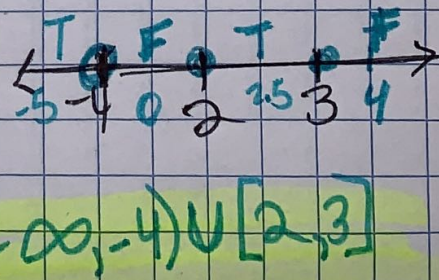 T F T F
-5 -4 0 2 2.5 3 4
-∞,-4)∪[2,3]